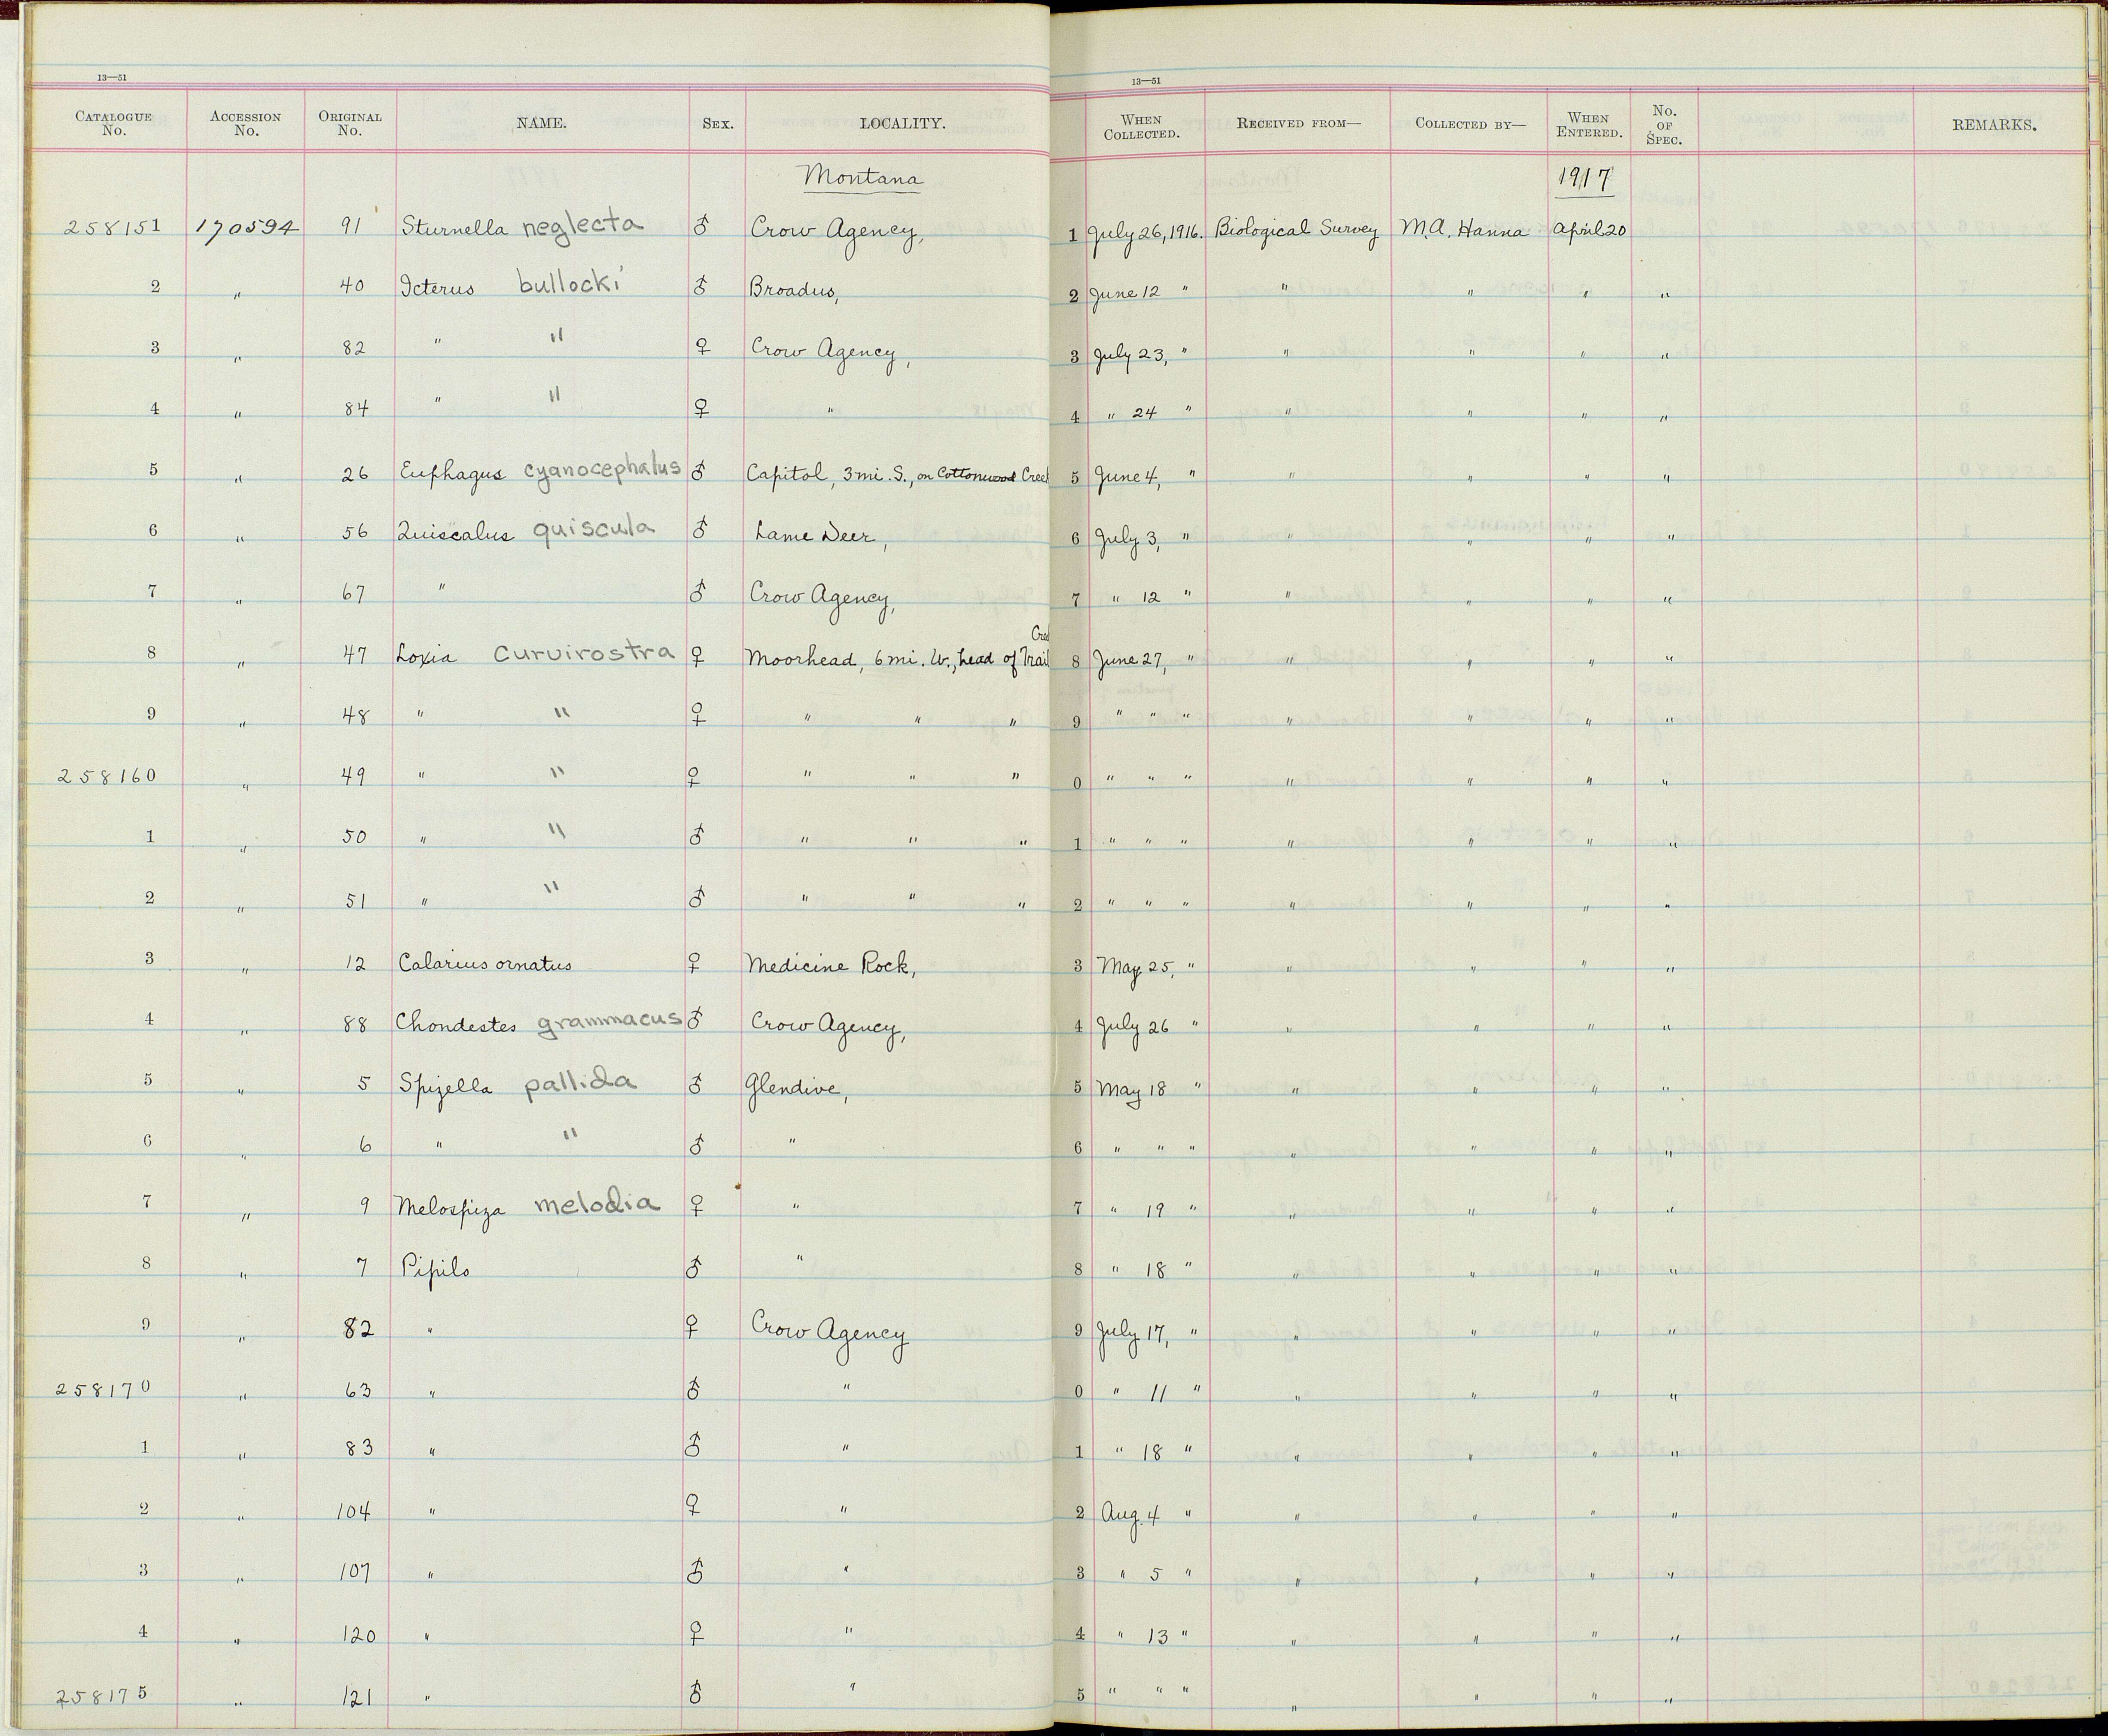 13—51 13—51
CATALOGUE No. ACCESSION No. ORIGINAL No. NAME. SEX. LOCALITY. WHEN COLLECTED. RECEIVED FROM— COLLECTED BY— WHEN ENTERED. No. OF SPEC. REMARKS.
Montana 1917
258151 170594 91 Sturnella neglecta ♂ Crow Agency, 1 July 26, 1916. Biological Survey M.A. Hanna April 20
2 " 40 Icterus bullocki ♂ Broadus, 2 June 12 " " " " "
3 " 82 " " ♀ Crow Agency, 3 July 23, " " " " "
4 " 84 " " ♀ " 4 " 24 " " " " "
5 " 26 Euphagus cyanocephalus ♂ Capitol, 3 mi. S., on Cottonwood Creek 5 June 4, " " " " "
6 " 56 Quiscalus quiscula ♂ Lame Deer, 6 July 3, " " " " "
7 " 67 " ♂ Crow Agency, 7 " 12 " " " " "
8 " 47 Loxia curvirostra ♀ Moorhead, 6 mi. W., head of Trail Cree 8 June 27, " " " " "
9 " 48 " " ♀ " " " 9 " " " " " " "
258160 " 49 " " ♀ " " " 0 " " " " " " "
1 " 50 " " ♂ " " " 1 " " " " " " "
2 " 51 " " ♂ " " " 2 " " " " " " "
3 " 12 Calarius ornatus ♀ Medicine Rock, 3 May 25, " " " " "
4 " 88 Chondestes grammacus ♂ Crow Agency, 4 July 26 " " " " "
5 " 5 Spizella pallida ♂ Glendive, 5 May 18 " " " " "
6 " 6 " " ♂ " 6 " " " " " " "
7 " 9 Melospiza melodia ♀ " 7 " 19 " " " " "
8 " 7 Pipilo ♂ " 8 " 18 " " " " "
9 " 82 " ♀ Crow Agency 9 July 17, " " " " "
258170 " 63 " ♂ " 0 " 11 " " " " "
1 " 83 " ♂ " 1 " 18 " " " " "
2 " 104 " ♀ " 2 Aug. 4 " " " " "
3 " 107 " ♂ " 3 " 5 " " " " "
4 " 120 " ♀ " 4 " 13 " " " " "
258175 " 121 " ♂ " 5 " " " " " " "